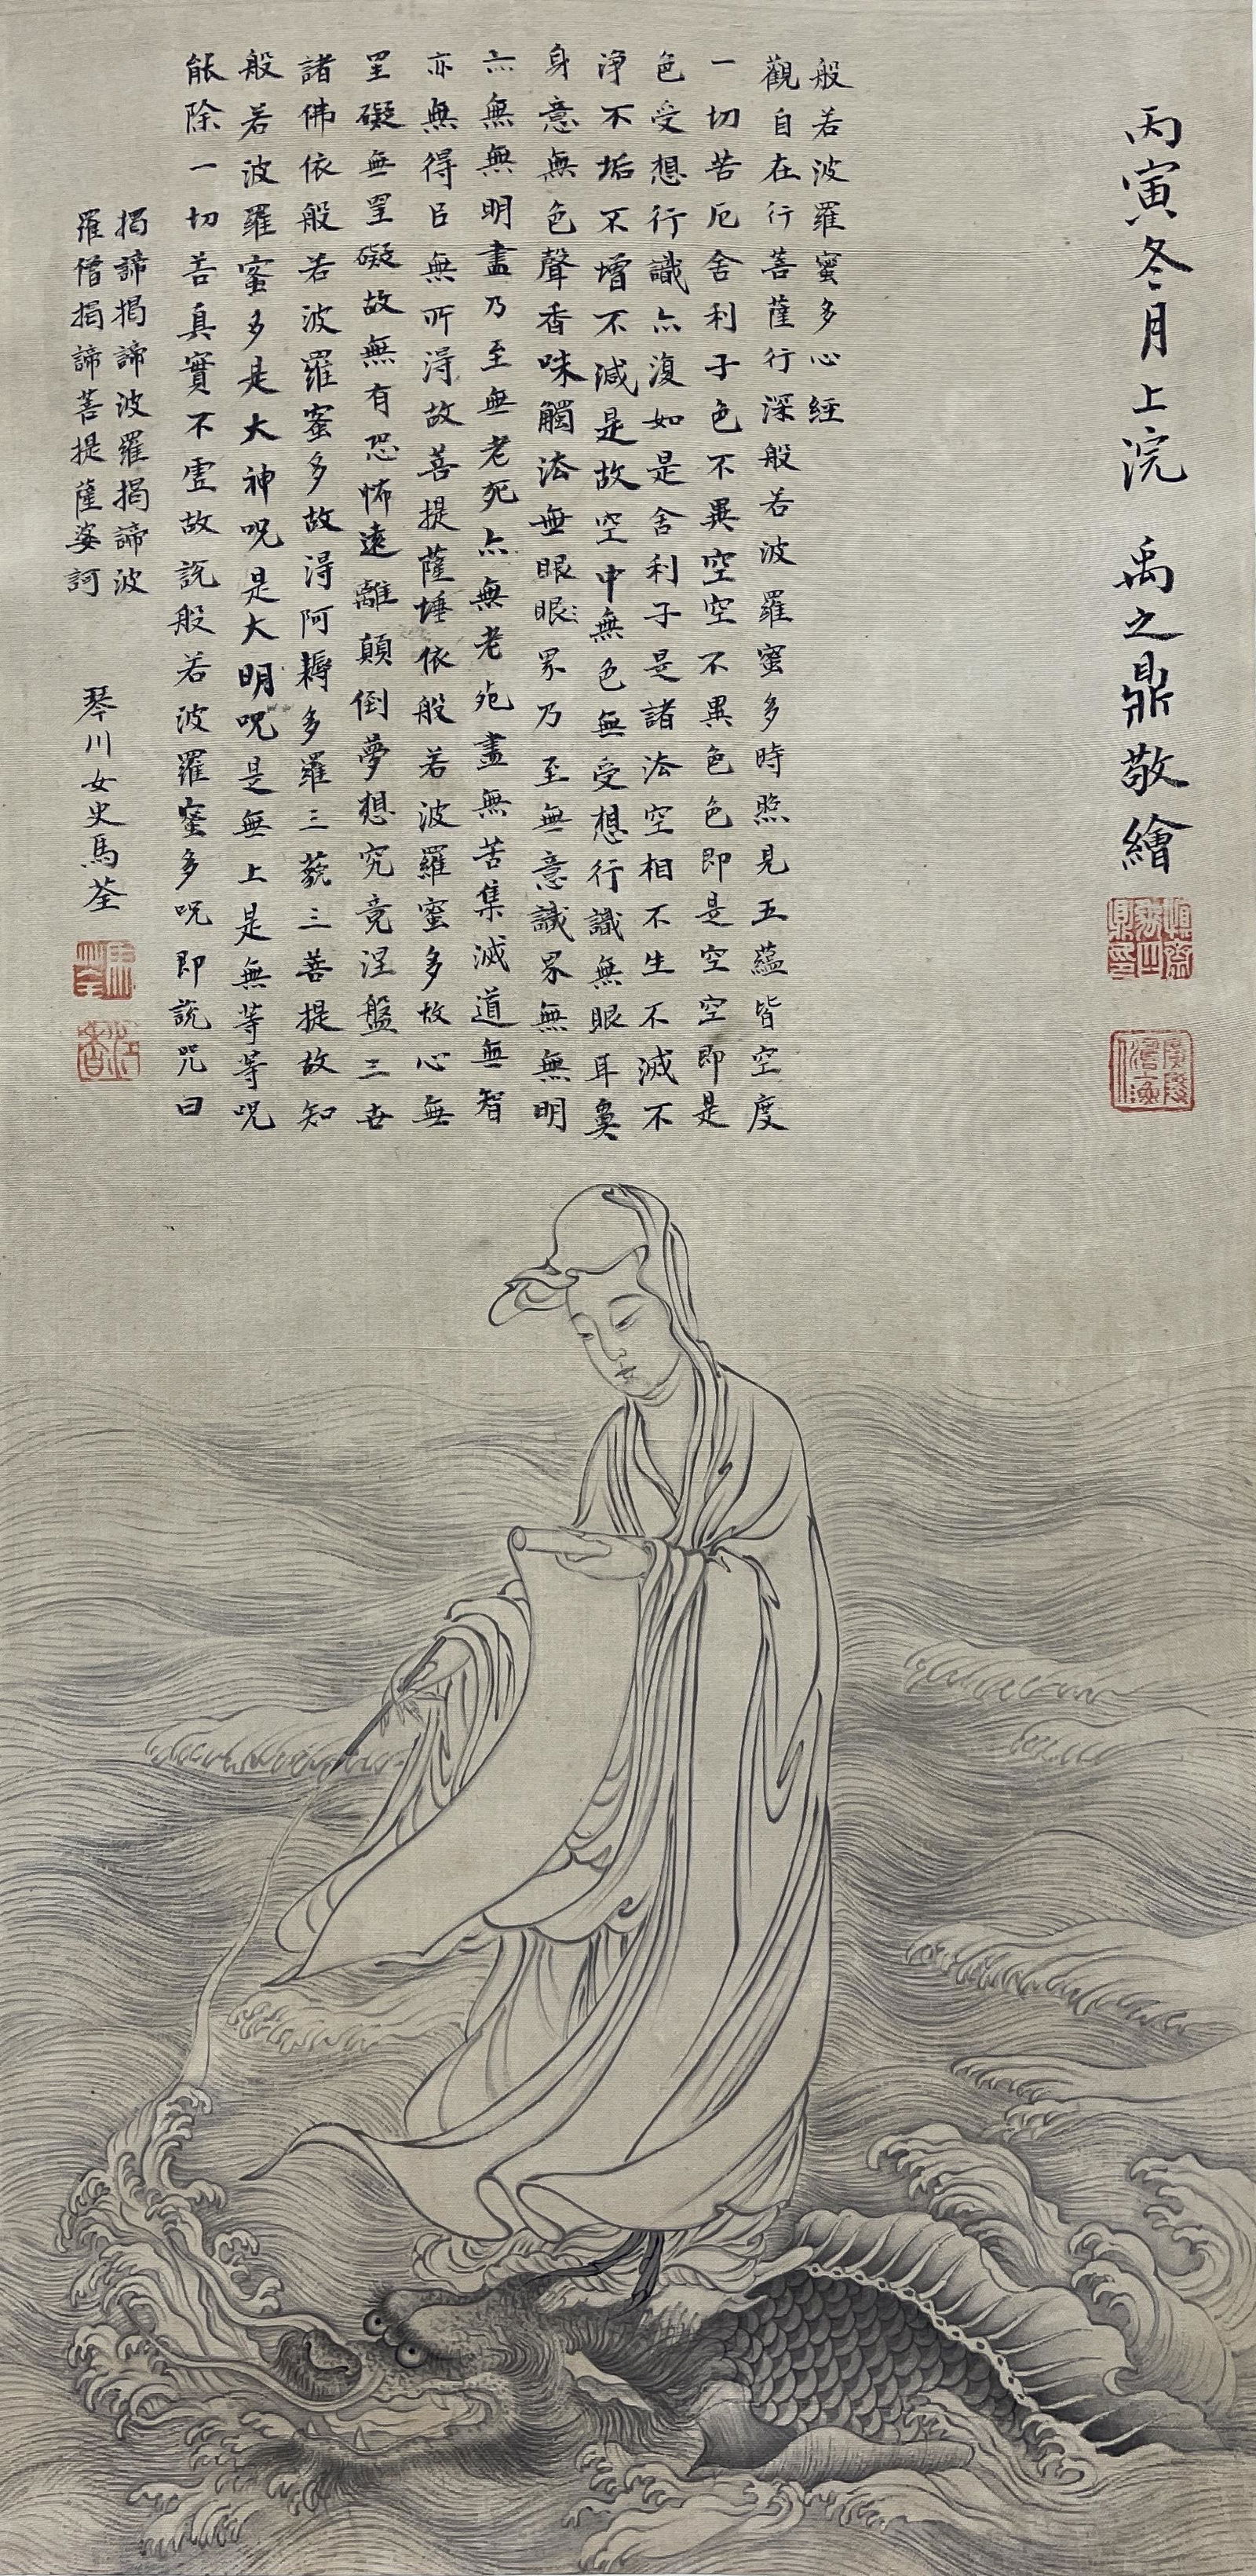 丙寅冬月上浣 禹之鼎敬繪
慎齋禹之鼎印
廣陵濤上漁人
般若波羅蜜多心經
觀自在行菩薩行深般若波羅蜜多時照見五蘊皆空度
一切苦厄舍利子色不異空空不異色色即是空空即是
色受想行識亦復如是舍利子是諸法空相不生不滅不
淨不垢不增不減是故空中無色無受想行識無眼耳鼻
身意無色聲香味觸法無眼眼界乃至無意識界無無明
亦無無明盡乃至無老死亦無老死盡無苦集滅道無智
亦無得以無所得故菩提薩埵依般若波羅蜜多故心無
罣礙無罣礙故無有恐怖遠離顛倒夢想究竟涅盤三世
諸佛依般若波羅蜜多故得阿耨多羅三藐三菩提故知
般若波羅蜜多是大神咒是大明咒是無上是無等等咒
能除一切苦真實不虛故說般若波羅蜜多咒即說咒曰
揭諦揭諦波羅揭諦波
羅僧揭諦菩提薩婆訶
琴川女史馬荃
馬荃
江香